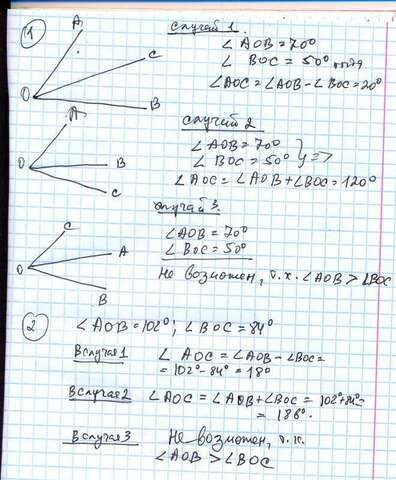 1
A
C
O
B
Случай 1.
∠AOB=70°
∠ BOC = 50° тогда
∠AOC = ∠AOB - ∠BOC = 20°
A
O
B
C
Случай 2
∠AOB = 70°
∠ BOC = 50° } =>
∠ AOC = ∠AOB + ∠BOC = 120°
C
A
O
B
Случай 3.
∠AOB = 70°
∠ BOC = 50°
Не возможен, т.к. ∠AOB > ∠BOC
2
∠ AOB = 102°; ∠ BOC = 84°
В случае 1 ∠ AOC = ∠AOB - ∠BOC =
= 102° - 84° = 18°
В случае 2 ∠ AOC = ∠AOB + ∠BOC = 102°+84° =
= 186°.
В случае 3 Не возможен, т.к.
∠AOB > ∠BOC